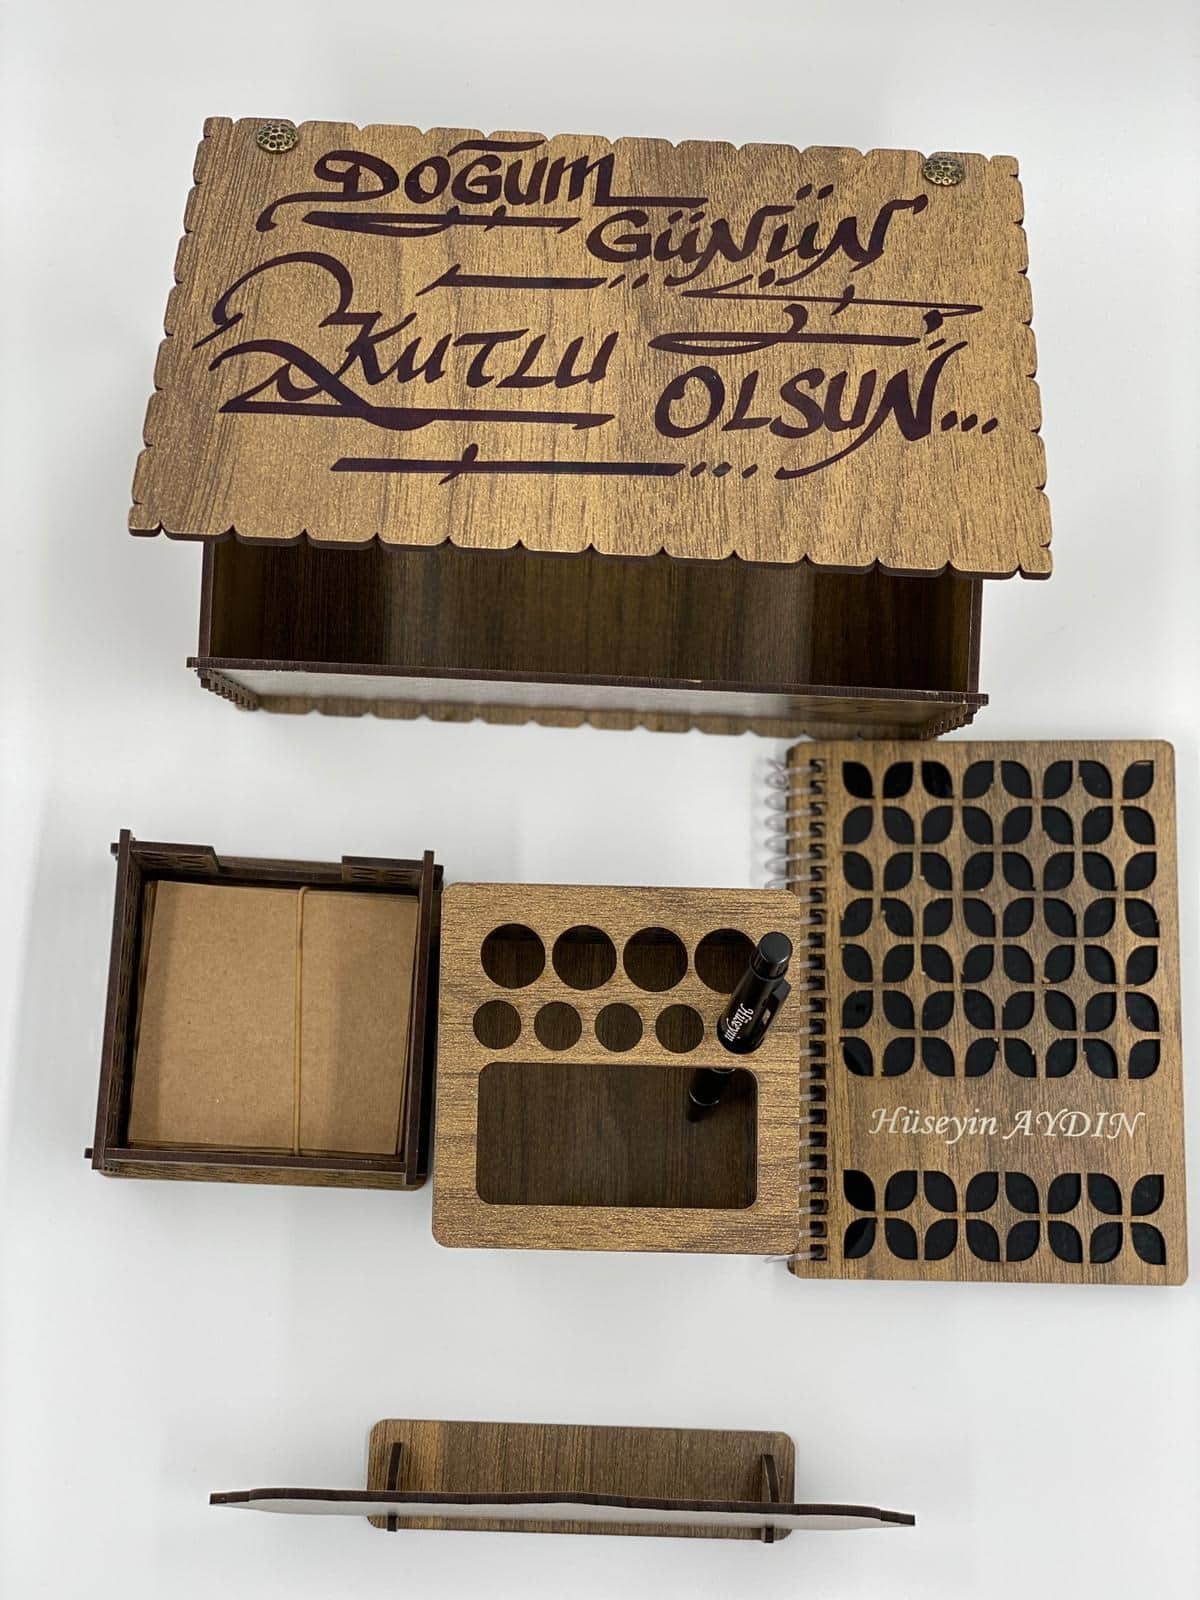 DOĞUM
GÜNÜN
KUTLU
OLSUN...
Hüseyin
Hüseyin AYDIN